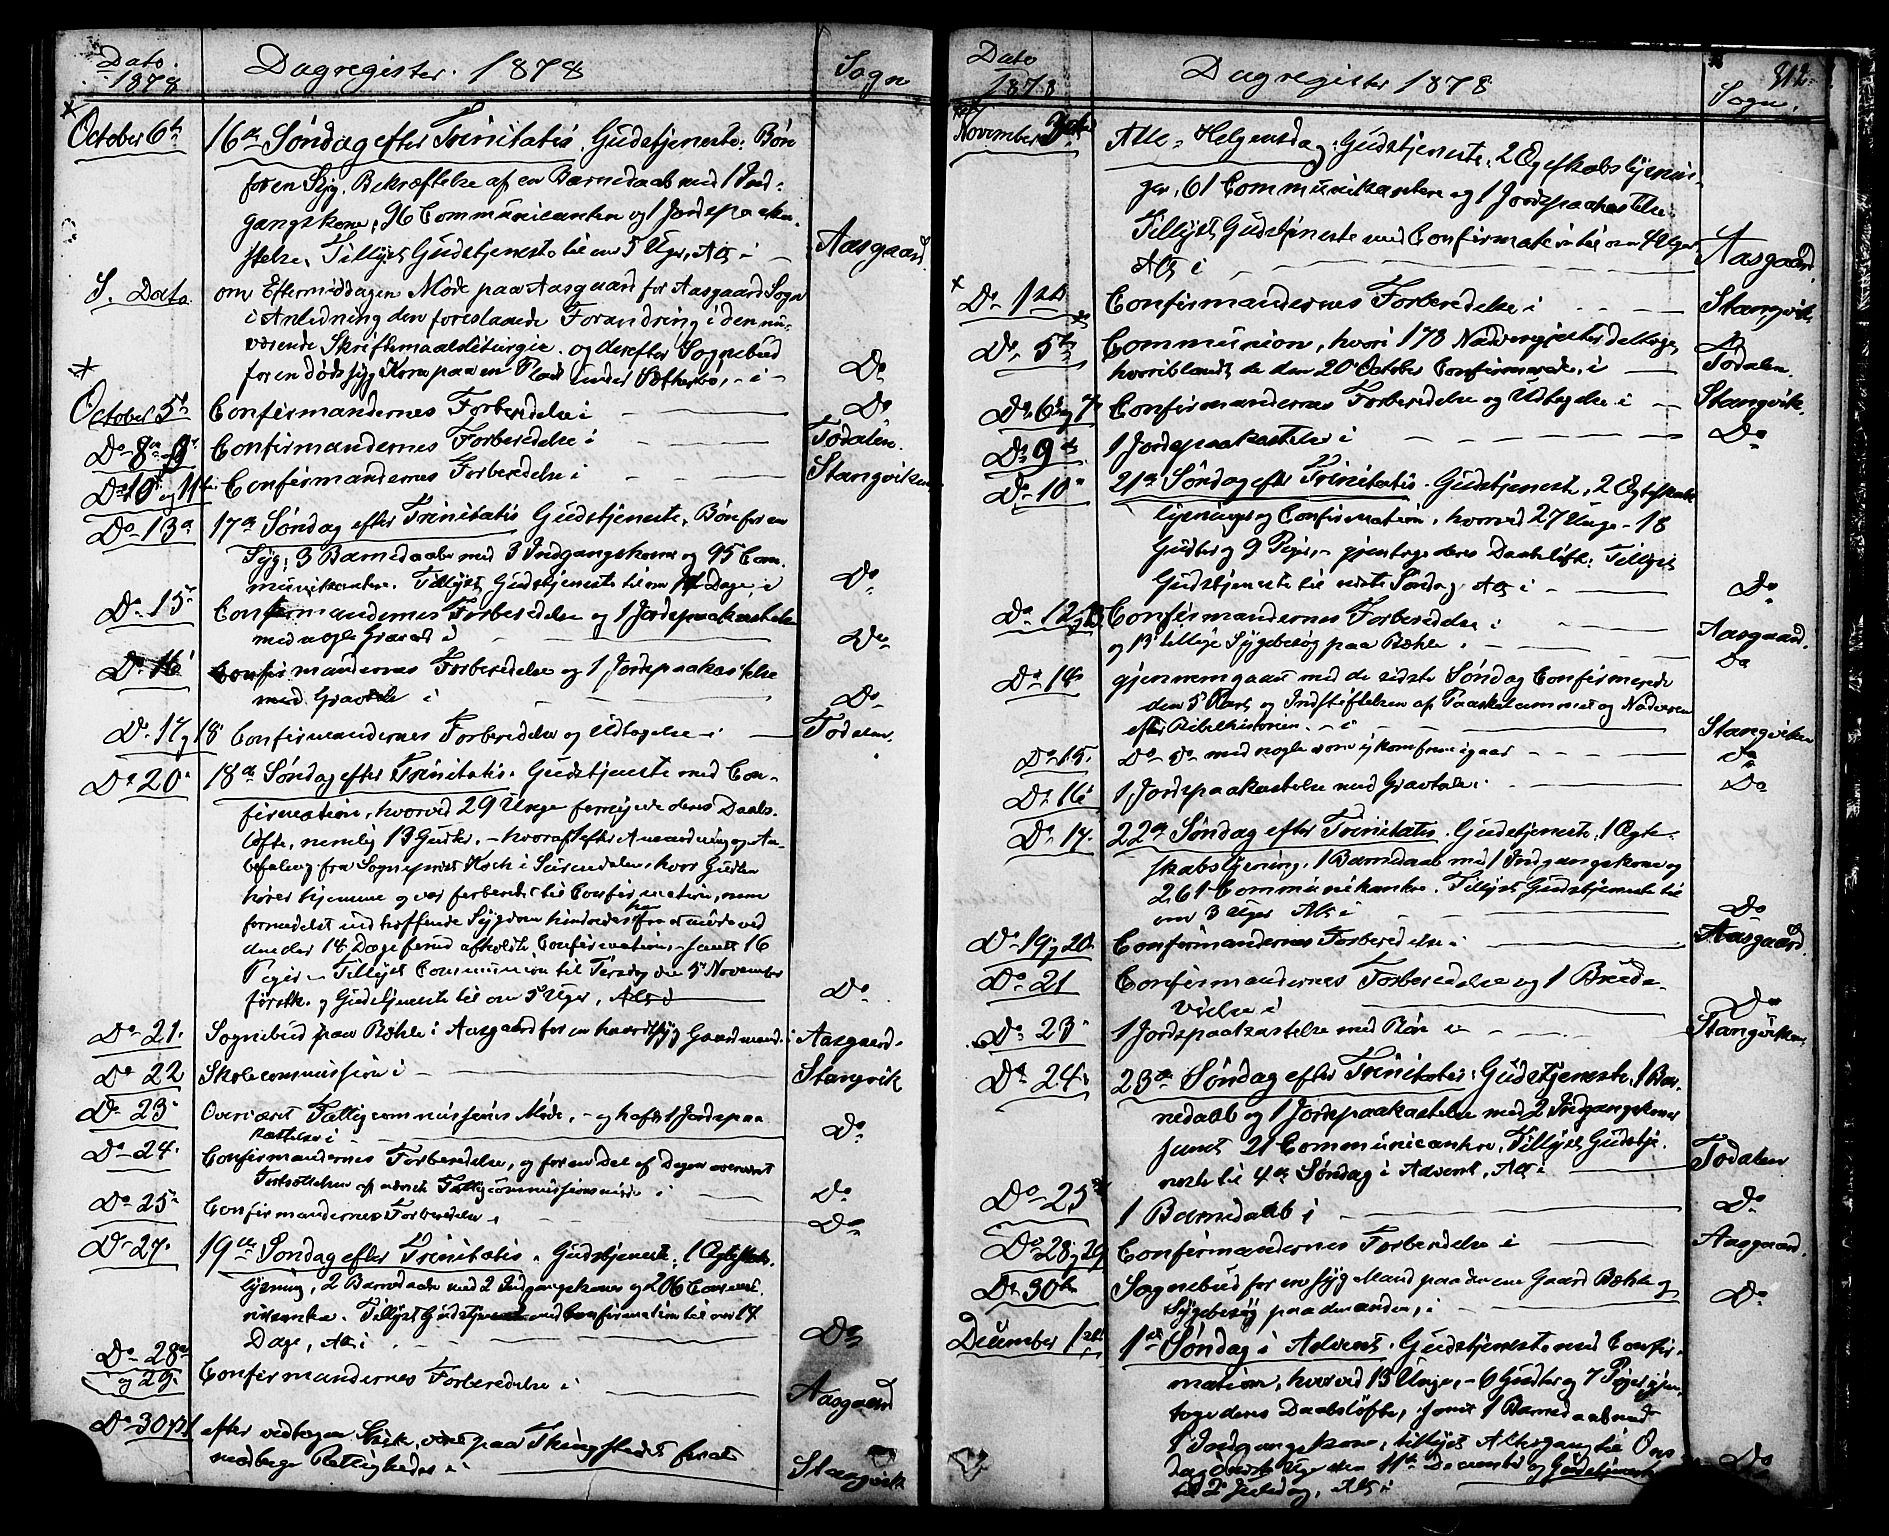 Dato 1878 Dagregister. 1878 Sogn
October 6te 16de Søndag efter Trinitatis. Gudstjeneste, Bøn
for en Syg. Bekræftelse af en Barnedaab med 1 Ind-
gangskone, 96 Communicanter og 1 Jordspaaka-
stelse. Tillyst Gudstjeneste til om 5 Uger, Alt i Aasgaard
S. Dato om Eftermiddagen Møde paa Aasgaard for Aasgaard Sogn
i Anledning den foreslaaede Forandring i den nu-
værende Skriftemaalsliturgie og derefter Sognebud
for en dødssyg Kone paa en Plads under Sætherbø, i Do
October 5te Confirmandernes Forberedelse i Do
Do 8de 9de Confirmandernes Forberedelse i Todalen.
Do 10 og 11te Confirmandernes Forberedelse i Stangviken
Do 13de 17de Søndag efter Trinitatis Gudstjeneste, Bøn for en
Syg, 3 Barnedaab med 3 Indgangskoner og 95 Com-
munikanter. Tillyst Gudstjeneste til om 14 Dage, i Do
Do 15de Confirmandernes Forberedelse og 1 Jordspaakastelse
med nogle Gravord i Do
Do 16 Confirmandernes Forberedelse og 1 Jordspaakastelse
med Gravtale i Do
Do 17 og 18 Confirmandernes Forberedelse og Udtagelse i Todalen.
Do 20 18de Søndag efter Trinitatis. Gudstjeneste med Con-
firmation, hvorved 29 Unge fornyede deres Daabs-
løfte, nemlig 13 Gutter, - hvoraf efter Anmodning og An-
befaling fra Sognepræst Koch i Surendalen, hvor Gutten
hører hjemme og var forberedt til Confirmation, men
formedelst indtræffende Sygdom hindredes han fra at møde ved
den der 14 Dage forud afholdte Confirmation, - samt 16
Piger. - Tillyst Communion til Tirsdag den 5te November
førstk. og Gudstjeneste til om 5 Uger, Alt i Do
Do 21. Sognebud paa Bæhle i Aasgaard for en haardtsyg Gaardmand. i Aasgaard.
Do 22 Skolecommission i Stangvik
Do 23 Overværet Fattigcommissionens Møde, - og havt 1 Jordspaa
kastelse i Do
Do 24. Confirmandernes Forberedelse, og for en Del af Dagen overværet
Fortsættelsen af Fattigcommissionsmøde i Do
Do 25de Confirmandernes Forberedelse i Do
Do 27. 19de Søndag efter Trinitatis. Gudstjeneste, 1 Ægteskabs-
lysning, 2 Barnedaab med 2 Indgangskoner og 206 Commu-
nikanter. Tillyst Gudstjeneste med Confirmation til om 14
Dage, Alt i Do
Do 28de og 29. Confirmandernes Forberedelse i Aasgaard
Do 30 og 31 efter vedtagen Skik, været paa Thingstedet for at
modtage Rettigheder i Stangvik
Dato 1878 Dagregister 1878 Sogn. 312.
November 3die Alle-Helgensdag, Gudstjeneste, 2 Ægteskabslysnin-
ger, 61 Communikanter og 1 Jordspaakastelse.
Tillyst Gudstjeneste med Confirmation til om 4 Uger
Alt i Aasgaard.
Do 1ste Confirmandernes Forberedelse i Stangvik
Do 5te Communion, hvori 178 Nadvergjester deltoge,
hvoriblandt de den 20 October Confirmerede, i Todalen.
Do 6 og 7de Confirmandernes Forberedelse og Udtagelse i Stangvik.
Do 9de 1 Jordspaakastelse i Do
Do 10de 21de Søndag efter Trinitatis. Gudstjeneste, 2 Ægteskabs-
lysninger og Confirmation, hvorved 27 Unge - 18
Gutter og 9 Piger, - gjentoge deres Daabsløfte. Tillyst
Gudstjeneste til næste Søndag, Alt i Do
Do 12 og 13 Confirmandernes Forberedelse i Aasgaard.
og 13 tillige Sygebesøg paa Bæhle. Do
Do 14de gjennemgaaet med de sidste Søndag Confirmerede
den 5te Part og Indstiftelsen af Paaskelammet og Nadveren
efter Bibelhistorien. i Stangviken
Do 15. Do Do med nogle som ej kom frem igaar Do
Do 16 1 Jordspaakastelse med Gravtale i Do
Do 17. 22de Søndag efter Trinitatis. Gudstjeneste, 1 Ægte-
skabslysning, 1 Barnedaab med 1 Indgangskone og
261 Communikanter. Tillyst Gudstjeneste til
om 3 Uger Alt i Do
Do 19 og 20. Confirmandernes Forberedelse i Aasgaard.
Do 21 Confirmandernes Forberedelse og 1 Brude-
vielse i Do
Do 23 1 Jordspaakastelse med Bøn i Stangviken
Do 24. 23de Søndag efter Trinitatis, Gudstjeneste, 1 Bar-
nedaab og 1 Jordspaakastelse med 2 Indgangskoner
samt 21 Communicanter. Tillyst Gudstje-
neste til 4de Søndag i Advent, Alt i Todalen
Do 25de 1 Barnedaab i Do
Do 28 og 29 Confirmandernes Forberedelse i Aasgaard.
Do 30te Sognebud for en syg Mand paa den ene Gaard Bæhle og
Sygebesøg paa den anden, i Do
December 1ste 1ste Søndag i Advent. Gudstjeneste med Confir-
mation, hvorved 13 Unge, - 6 Gutter og 7 Piger gjen-
toge deres Daabsløfte, samt 1 Barnedaab med
1 Indgangskone, tillyst Altergang til Ons-
dag næste Uge den 11te December og Gudstjeneste
til 2den Juledag, Alt i Do